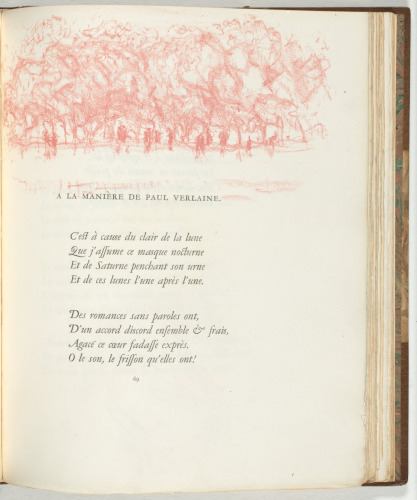 A LA MANIÈRE DE PAUL VERLAINE.
C'est à cause du clair de la lune
Que j'assume ce masque nocturne
Et de Saturne penchant son urne
Et de ces lunes l'une après l'une.
Des romances sans paroles ont,
D'un accord discord ensemble & frais,
Agacé ce cœur fadasse exprès.
O le son, le frisson qu'elles ont!
69